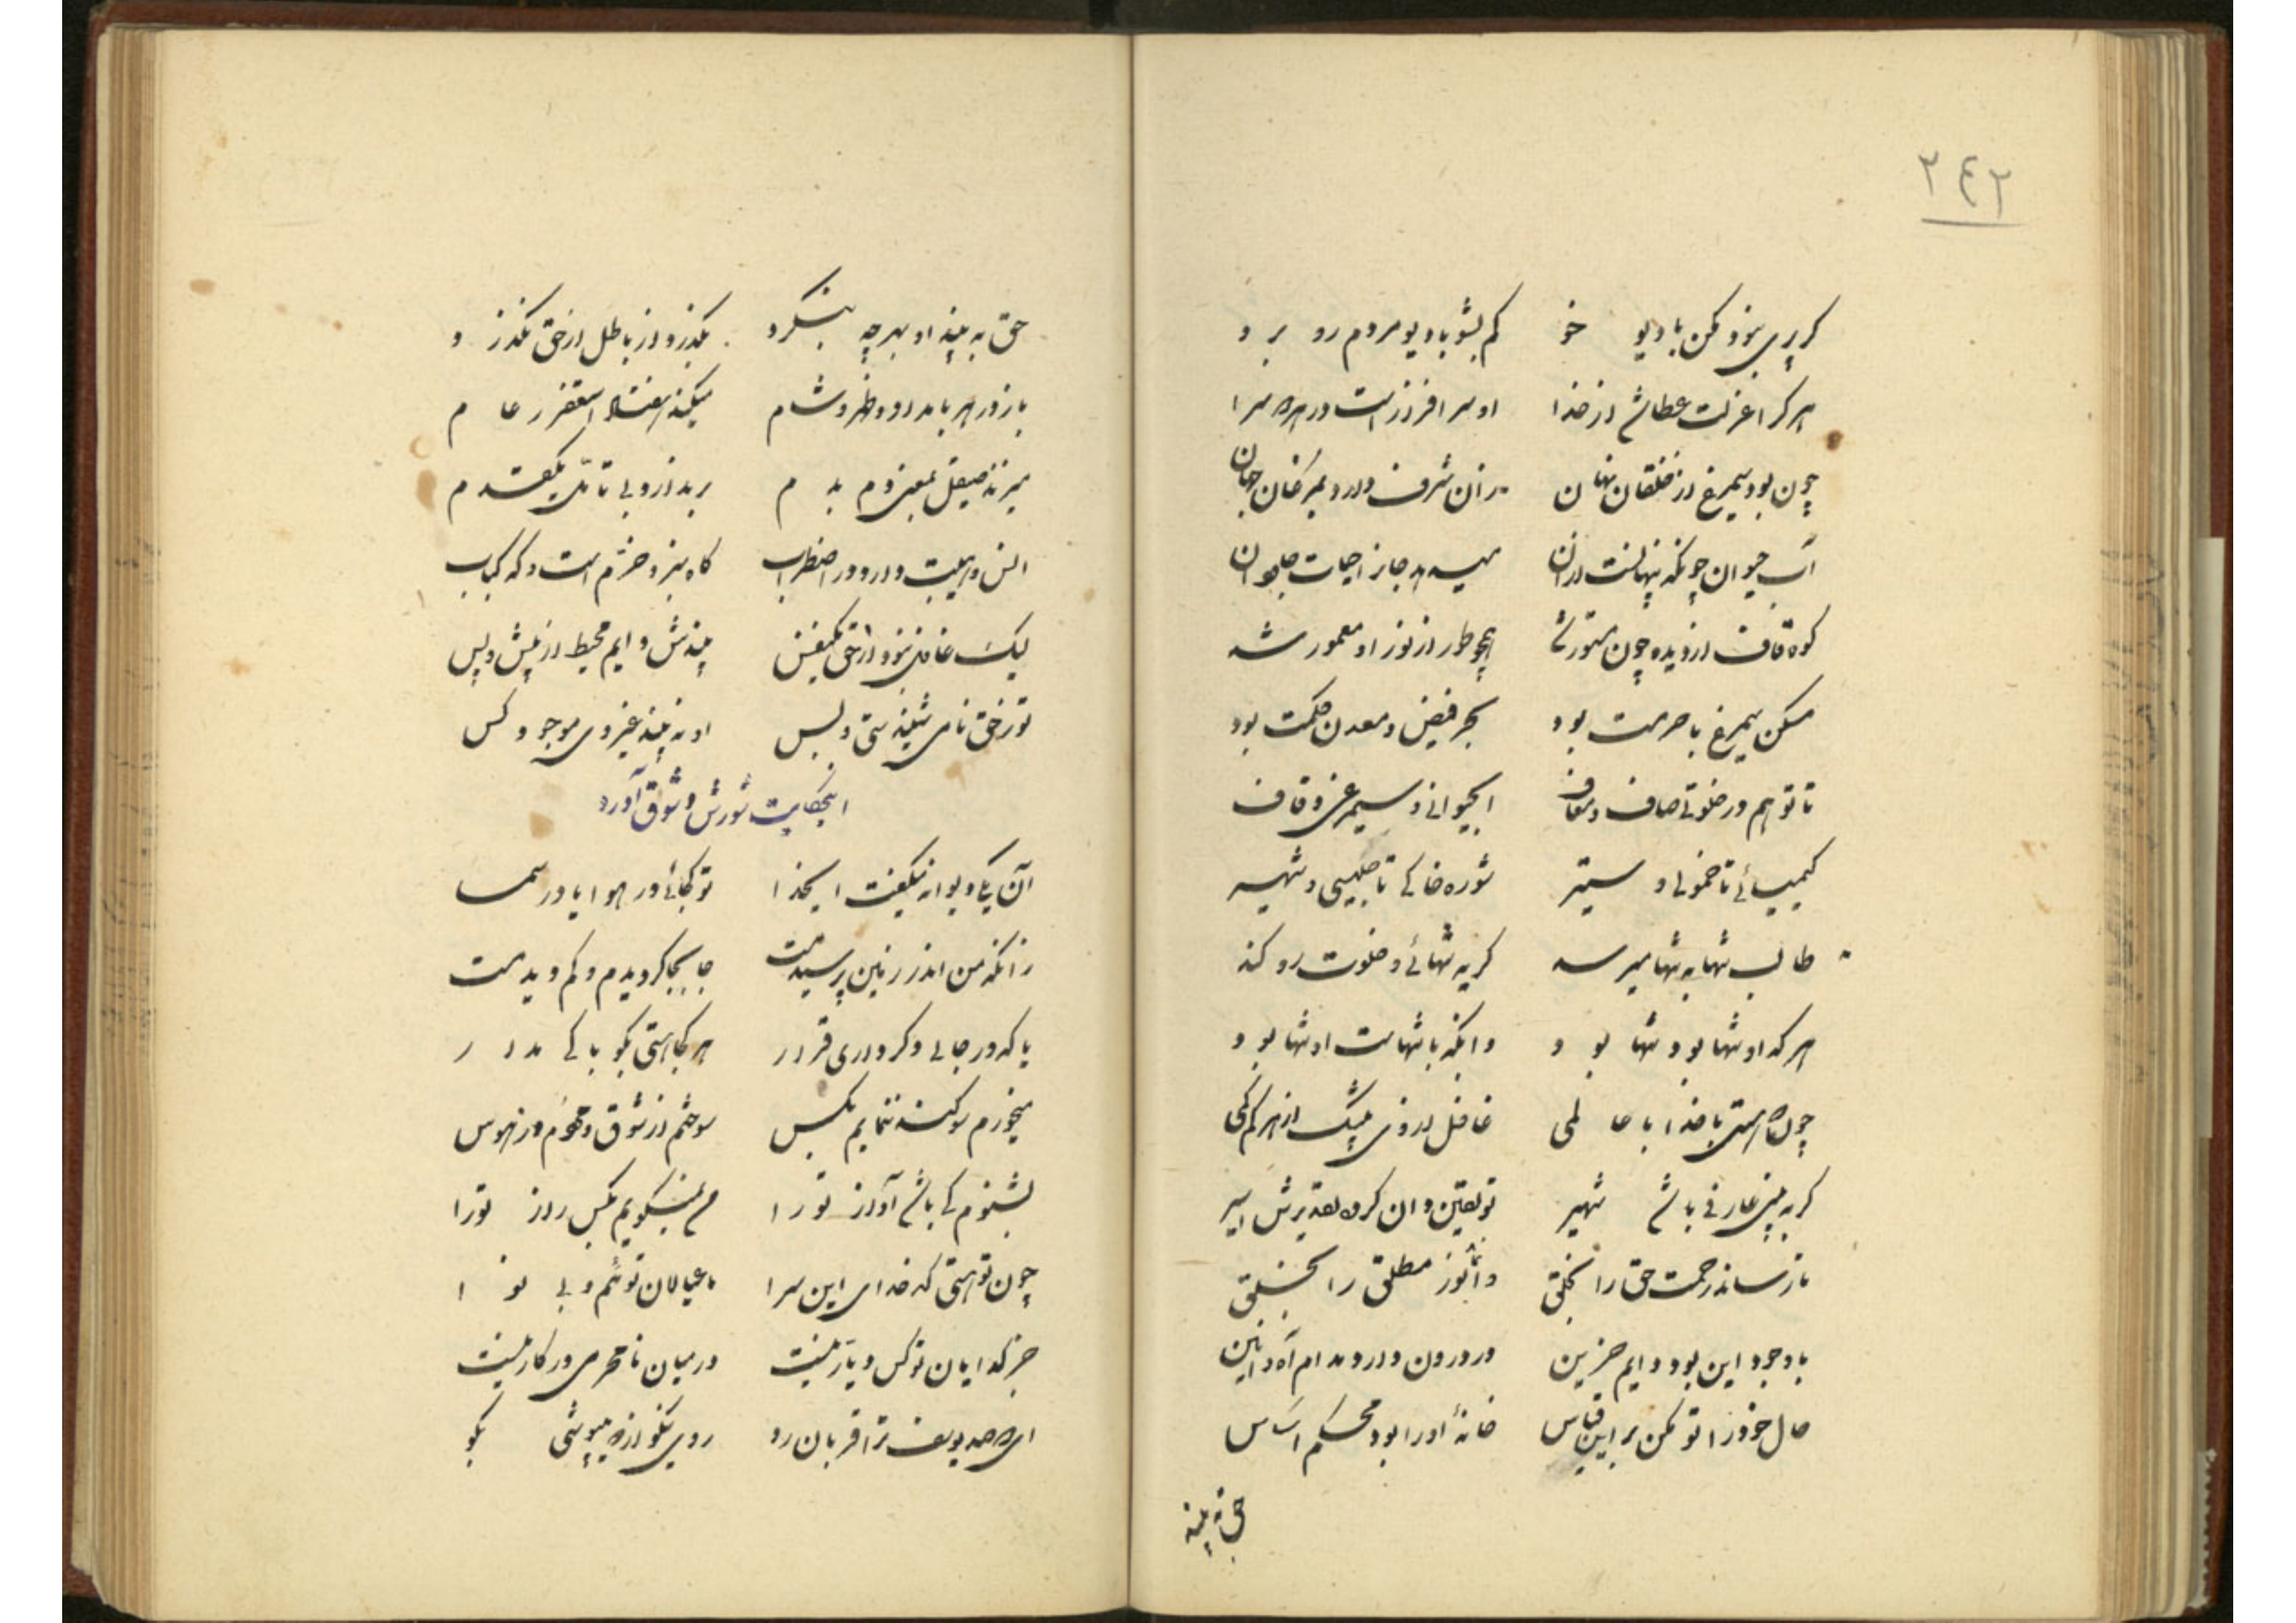 ۳۴۲
گر پری بنود مکن با دیو خو کم بشو با دیو مردم رو برو
هر کرا عزلت عطا شد از خدا او سرافراز است در هر دو سرا
چون بود سیمرغ از خلقان نهان زان شرف دارد بمرغان جهان
آب حیوان چونکه پنهانست از آن میدهد جانرا حیات جاودان
کوه قاف از دیده چون مستور شد همچو طور از نور او معمور شد
مسکن سیمرغ با حرمت بود بحر فیض و معدن حکمت بود
تا تو هم در خلوتی صاف و معاف آب حیوانی و سیمرغی و قاف
کیمیائی تا خمولی و ستیر شوره خاکی تا جلیسی و شهیر
طالب تنها به تنها میرسد گر به تنهائی و خلوت رو کند
هر که او تنها بود تنها بود وانکه با تنهاست او تنها بود
چونکه هستی با خدا با عالمی غافل از وی بیشک از هر کم کمی
گر به بینی عارفی باشد شهیر تو یقین دان کرده تقدیرش اسیر
تا رساند رحمت حق را بخلق وا نماید نور مطلق را بخلق
با وجود این بود دایم حزین در درون دارد مدام آه و انین
حال خود را تو مکن بر این قیاس خانهٔ او را بود محکم اساس
حق به بیند
حق به بیند او بهر چه بنگرد بگذرد از باطل از حق نگذرد
میزند صیقل بمعنی دم بدم بر ندارد بی تأمل یکقدم
انس و هیبت دارد و در اضطراب گاه سبز و خرم است و گه کباب
لیک غافل نبود از حق یکنفس بیندش دایم محیط از پیش و پس
تو ز حق نامی شنیدستی و بس او نه بیند غیر وی موجود کس
اینحکایت شورش و شوق آورد
آن یکی دیوانه میگفت ایخدا تو کجائی در هوا یا در سما
زانکه من اندر زمین پرسیدمت جا بجا گردیدم و کم دیدمت
یا که در جای دگر داری قرار هر کجا هستی بگو باکی مدار
میخورم سوگند ننمایم بکس سوختم از شوق و مردم از هوس
بشنوم کی باشد آواز تو را من نمیگویم بکس راز تو را
چون تو هستی کدخدای این سرا ما عیالان توئیم و بی نوا
جز گدایان تو کس دیار نیست در میان نامحرمی در کار نیست
ای دو صد یوسف ترا قربان رو روی نیکو از چه میپوشی بگو